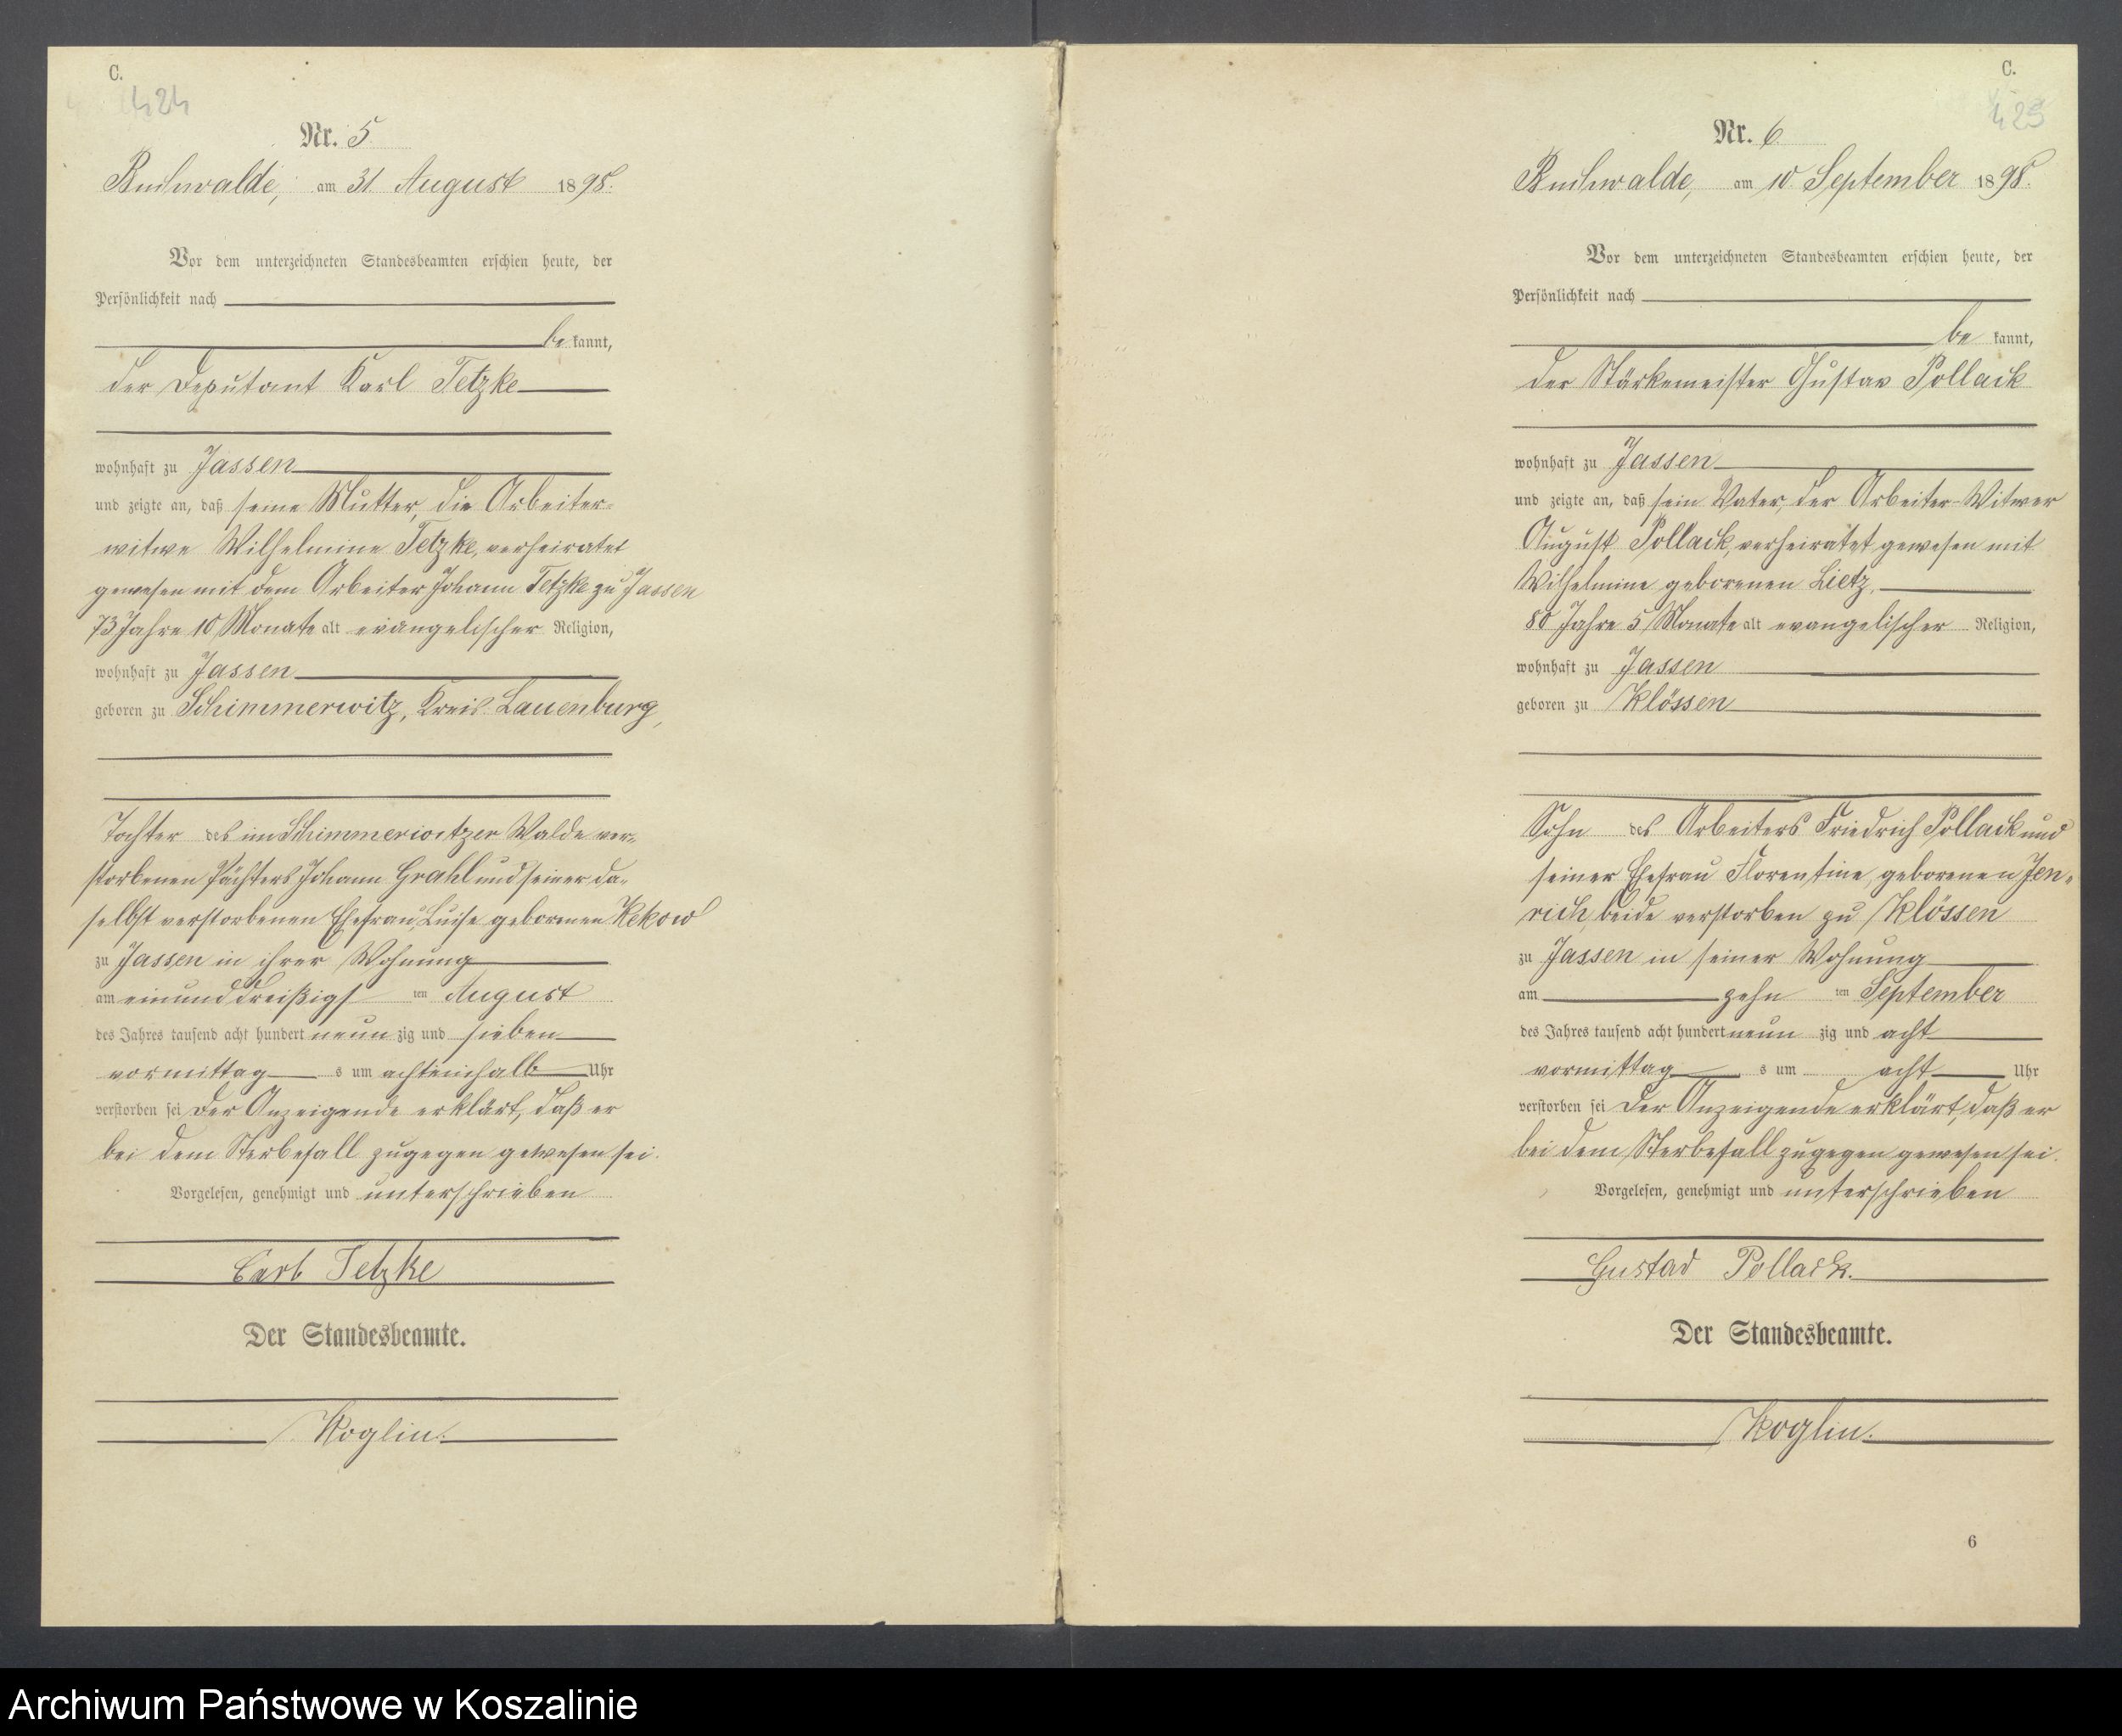 C.
424
Nr. 5.
Buchwalde, am 31 August 1898.
Vor dem unterzeichneten Standesbeamten erschien heute, der
Persönlichkeit nach
be kannt,
der Deputant Karl Tetzke
wohnhaft zu Jassen
und zeigte an, daß seine Mutter, die Arbeiter-
witwe Wilhelmine Tetzke, verheiratet
gewesen mit dem Arbeiter Johann Tetzke zu Jassen
73 Jahre 10 Monate alt evangelischer Religion,
wohnhaft zu Jassen
geboren zu Schimmerwitz, Kreis Lauenburg,
Tochter des im Schimmerwitzer Walde ver-
storbenen Pächters Johann Grahl und seiner da-
selbst verstorbenen Ehefrau, Luise geborenen Kekow
zu Jassen in ihrer Wohnung
am einunddreißigs ten August
des Jahres tausend acht hundert neun zig und sieben
vormittag s um achteinhalb Uhr
verstorben sei Der Anzeigende erklärt, daß er
bei dem Sterbefall zugegen gewesen sei.
Vorgelesen, genehmigt und unterschrieben
Carl Tetzke
Der Standesbeamte.
Koglin.
C.
425
Nr. 6.
Buchwalde, am 10 September 1898.
Vor dem unterzeichneten Standesbeamten erschien heute, der
Persönlichkeit nach
be kannt,
der Stärkemeister Gustav Pollack
wohnhaft zu Jassen
und zeigte an, daß sein Vater, der Arbeiter-Witwer
August Pollack, verheiratet gewesen mit
Wilhelmine geborenen Lietz,
80 Jahre 5 Monate alt evangelischer Religion,
wohnhaft zu Jassen
geboren zu Klössen
Sohn des Arbeiters Friedrich Pollack und
seiner Ehefrau Florentine, geborenen Jen-
rich, beide verstorben zu Klössen
zu Jassen in seiner Wohnung
am zehn ten September
des Jahres tausend acht hundert neun zig und acht
vormittag s um acht Uhr
verstorben sei Der Anzeigende erklärt, daß er
bei dem Sterbefall zugegen gewesen sei.
Vorgelesen, genehmigt und unterschrieben
Gustad Pollack.
Der Standesbeamte.
Koglin.
6
Archiwum Państwowe w Koszalinie